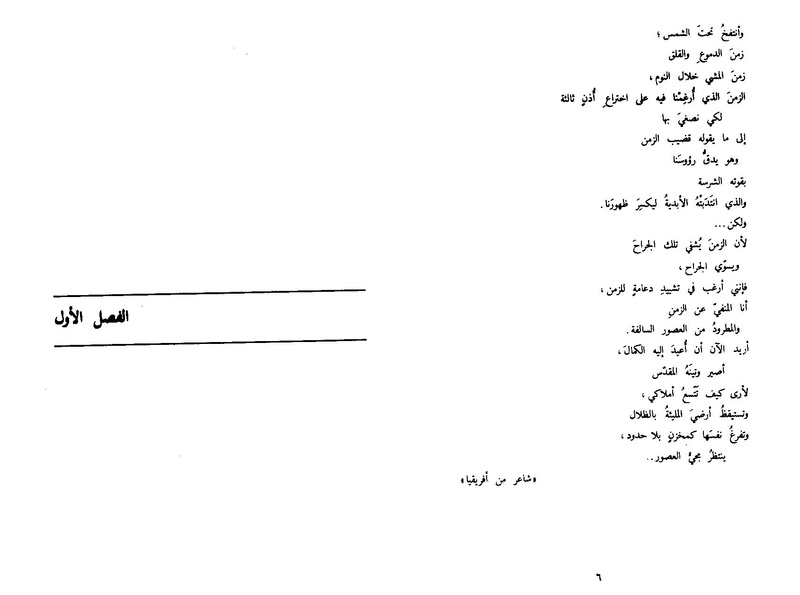 وأنتفخُ تحتَ الشمس؛
زمنَ الدموعِ والقلق
زمنَ المشي خلال النوم،
الزمنَ الذي أُرغِمْنا فيه على اختراعِ أُذنٍ ثالثة
لكي نصغيَ بها
إلى ما يقوله قضيب الزمن
وهو يدقُّ رؤوسَنا
بقوته الشرسة
والذي انتَدَبَتْهُ الأبديةُ ليكسِرَ ظهورَنا.
ولكن...
لأن الزمنَ يُشفي تلك الجراحَ
ويسوّي الجراح،
فإنني أرغب في تشييدِ دعامةٍ للزمن،
أنا المنفيّ عن الزمنِ
والمطرودُ من العصور السالفة.
أريد الآن أن أُعيدَ إليه الكمالَ،
أصير وثينَهُ المقدّس
لأرى كيف تتّسعُ أملاكي،
وتستيقظُ أرضيَ المليئةُ بالظلال
وتفرغُ نفسَها كمخزنٍ بلا حدود،
ينتظرُ مجيُّ العصور..
«شاعر من أفريقيا»
٦
الفصل الأول